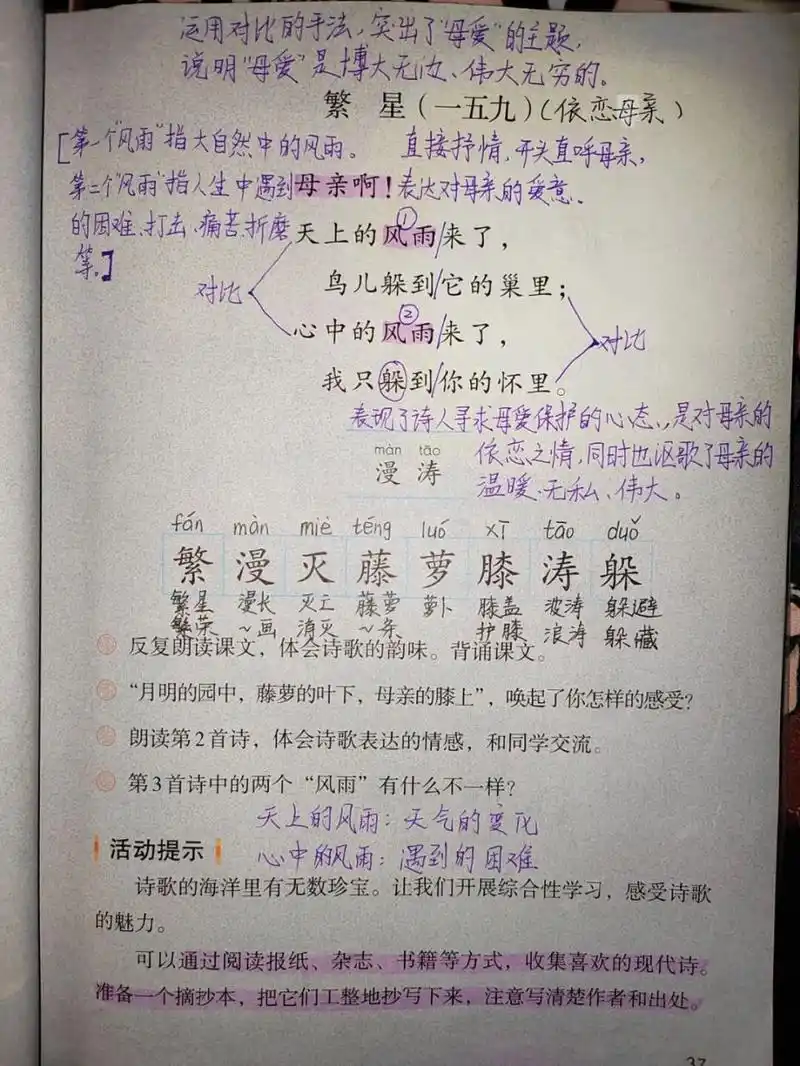 运用对比的手法，突出了"母爱"的主题，
说明"母爱"是博大无边、伟大无穷的。
繁 星（一五九）（依恋母亲）
[第一个"风雨"指大自然中的风雨。 直接抒情，开头直呼母亲，
第二个"风雨"指人生中遇到 母亲啊！表达对母亲的爱意。
的困难、打击、痛苦、折磨 天上的风雨/来了， ①
等。]
对比 鸟儿躲到/它的巢里；
心中的风雨/来了， ② 对比
我只躲到/你的怀里。
表现了诗人寻求母爱保护的心态，是对母亲的
màn tāo
漫 涛 依恋之情，同时也讴歌了母亲的
温暖、无私、伟大。
fán màn miè téng luó xī tāo duǒ
繁 漫 灭 藤 萝 膝 涛 躲
繁星 漫长 灭亡 藤萝 萝卜 膝盖 波涛 躲避
繁荣 ～画 消灭 ～条 护膝 浪涛 躲藏
反复朗读课文，体会诗歌的韵味。背诵课文。
“月明的园中，藤萝的叶下，母亲的膝上”，唤起了你怎样的感受？
朗读第2首诗，体会诗歌表达的情感，和同学交流。
第3首诗中的两个“风雨”有什么不一样？
天上的风雨：天气的变化
活动提示 心中的风雨：遇到的困难
诗歌的海洋里有无数珍宝。让我们开展综合性学习，感受诗歌
的魅力。
可以通过阅读报纸、杂志、书籍等方式，收集喜欢的现代诗。
准备一个摘抄本，把它们工整地抄写下来，注意写清楚作者和出处。
37